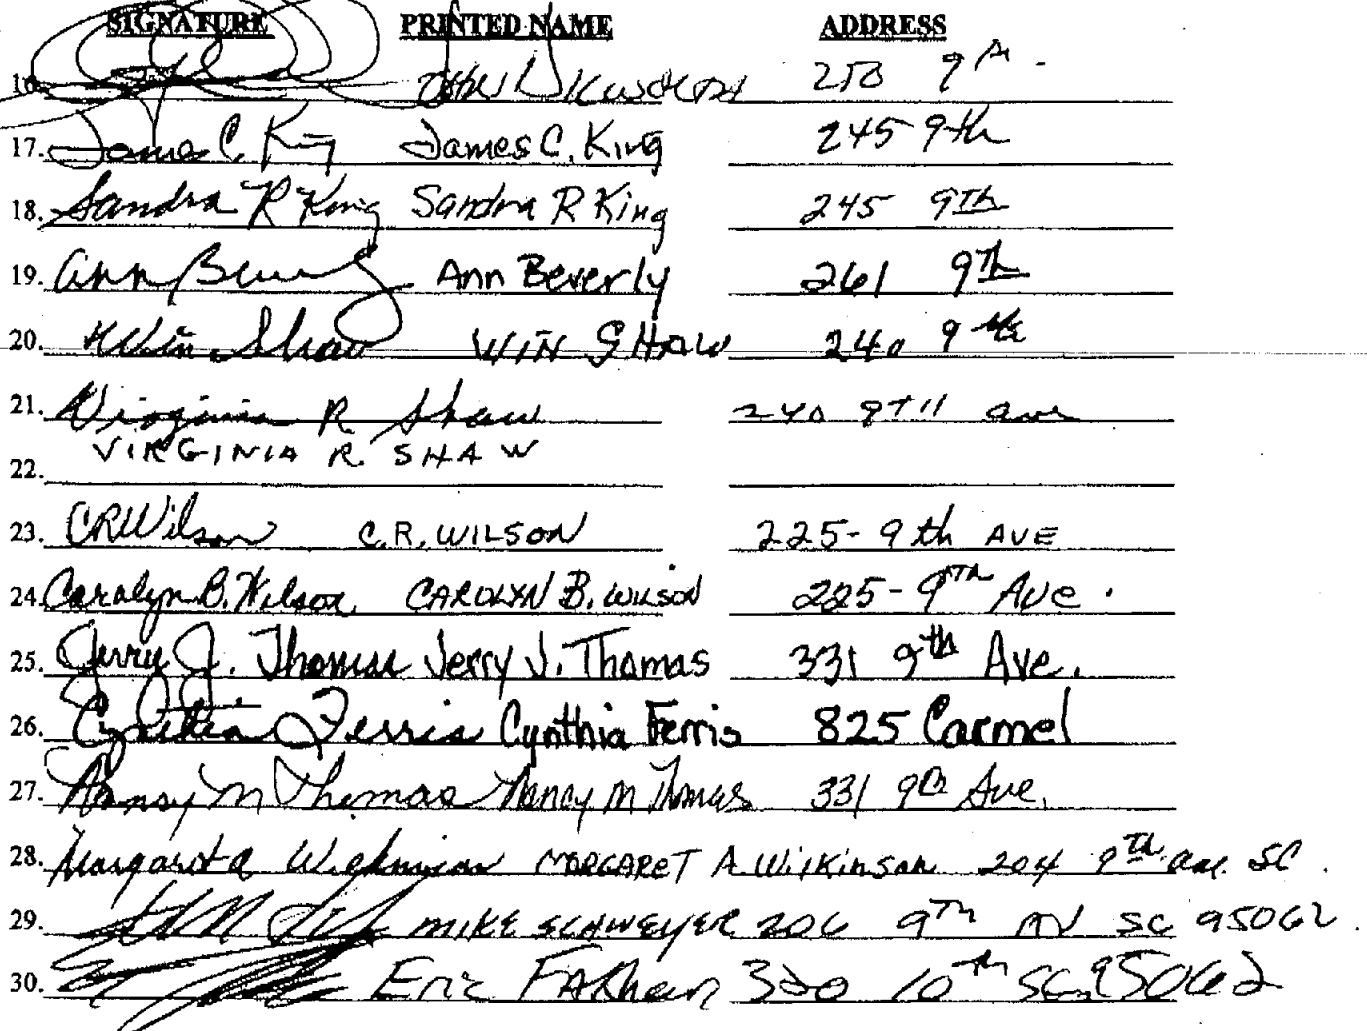 SIGNATURE PRINTED NAME ADDRESS
16. 9
17. James C. King James C. King 245 9th
18. Sandra R King Sandra R King 245 9Th
19. Ann Beverly 261 9Th
20. Win Shaw WIN SHAW 240 9
21. Virginia R. Shaw 240 9TH ave
VIRGINIA R. SHAW
22.
23. CRWilson C.R. WILSON 225- 9th AVE
24. Carolyn B. Wilson CAROLYN B. WILSON 225- 9TH Ave.
25. Jerry J. Thomas Jerry J. Thomas 331 9th Ave.
26. Cynthia Ferris Cynthia Ferris 825 Carmel
27. Nancy M Thomas Nancy M Thomas 331 9th Ave.
28. Margaret A Wilkinson MARGARET A WilKinson 204 9Th ave. SC.
29. MIKE SCHWEYER 206 9TH AV SC 95062.
30. Eric 320 10Th SC 95062